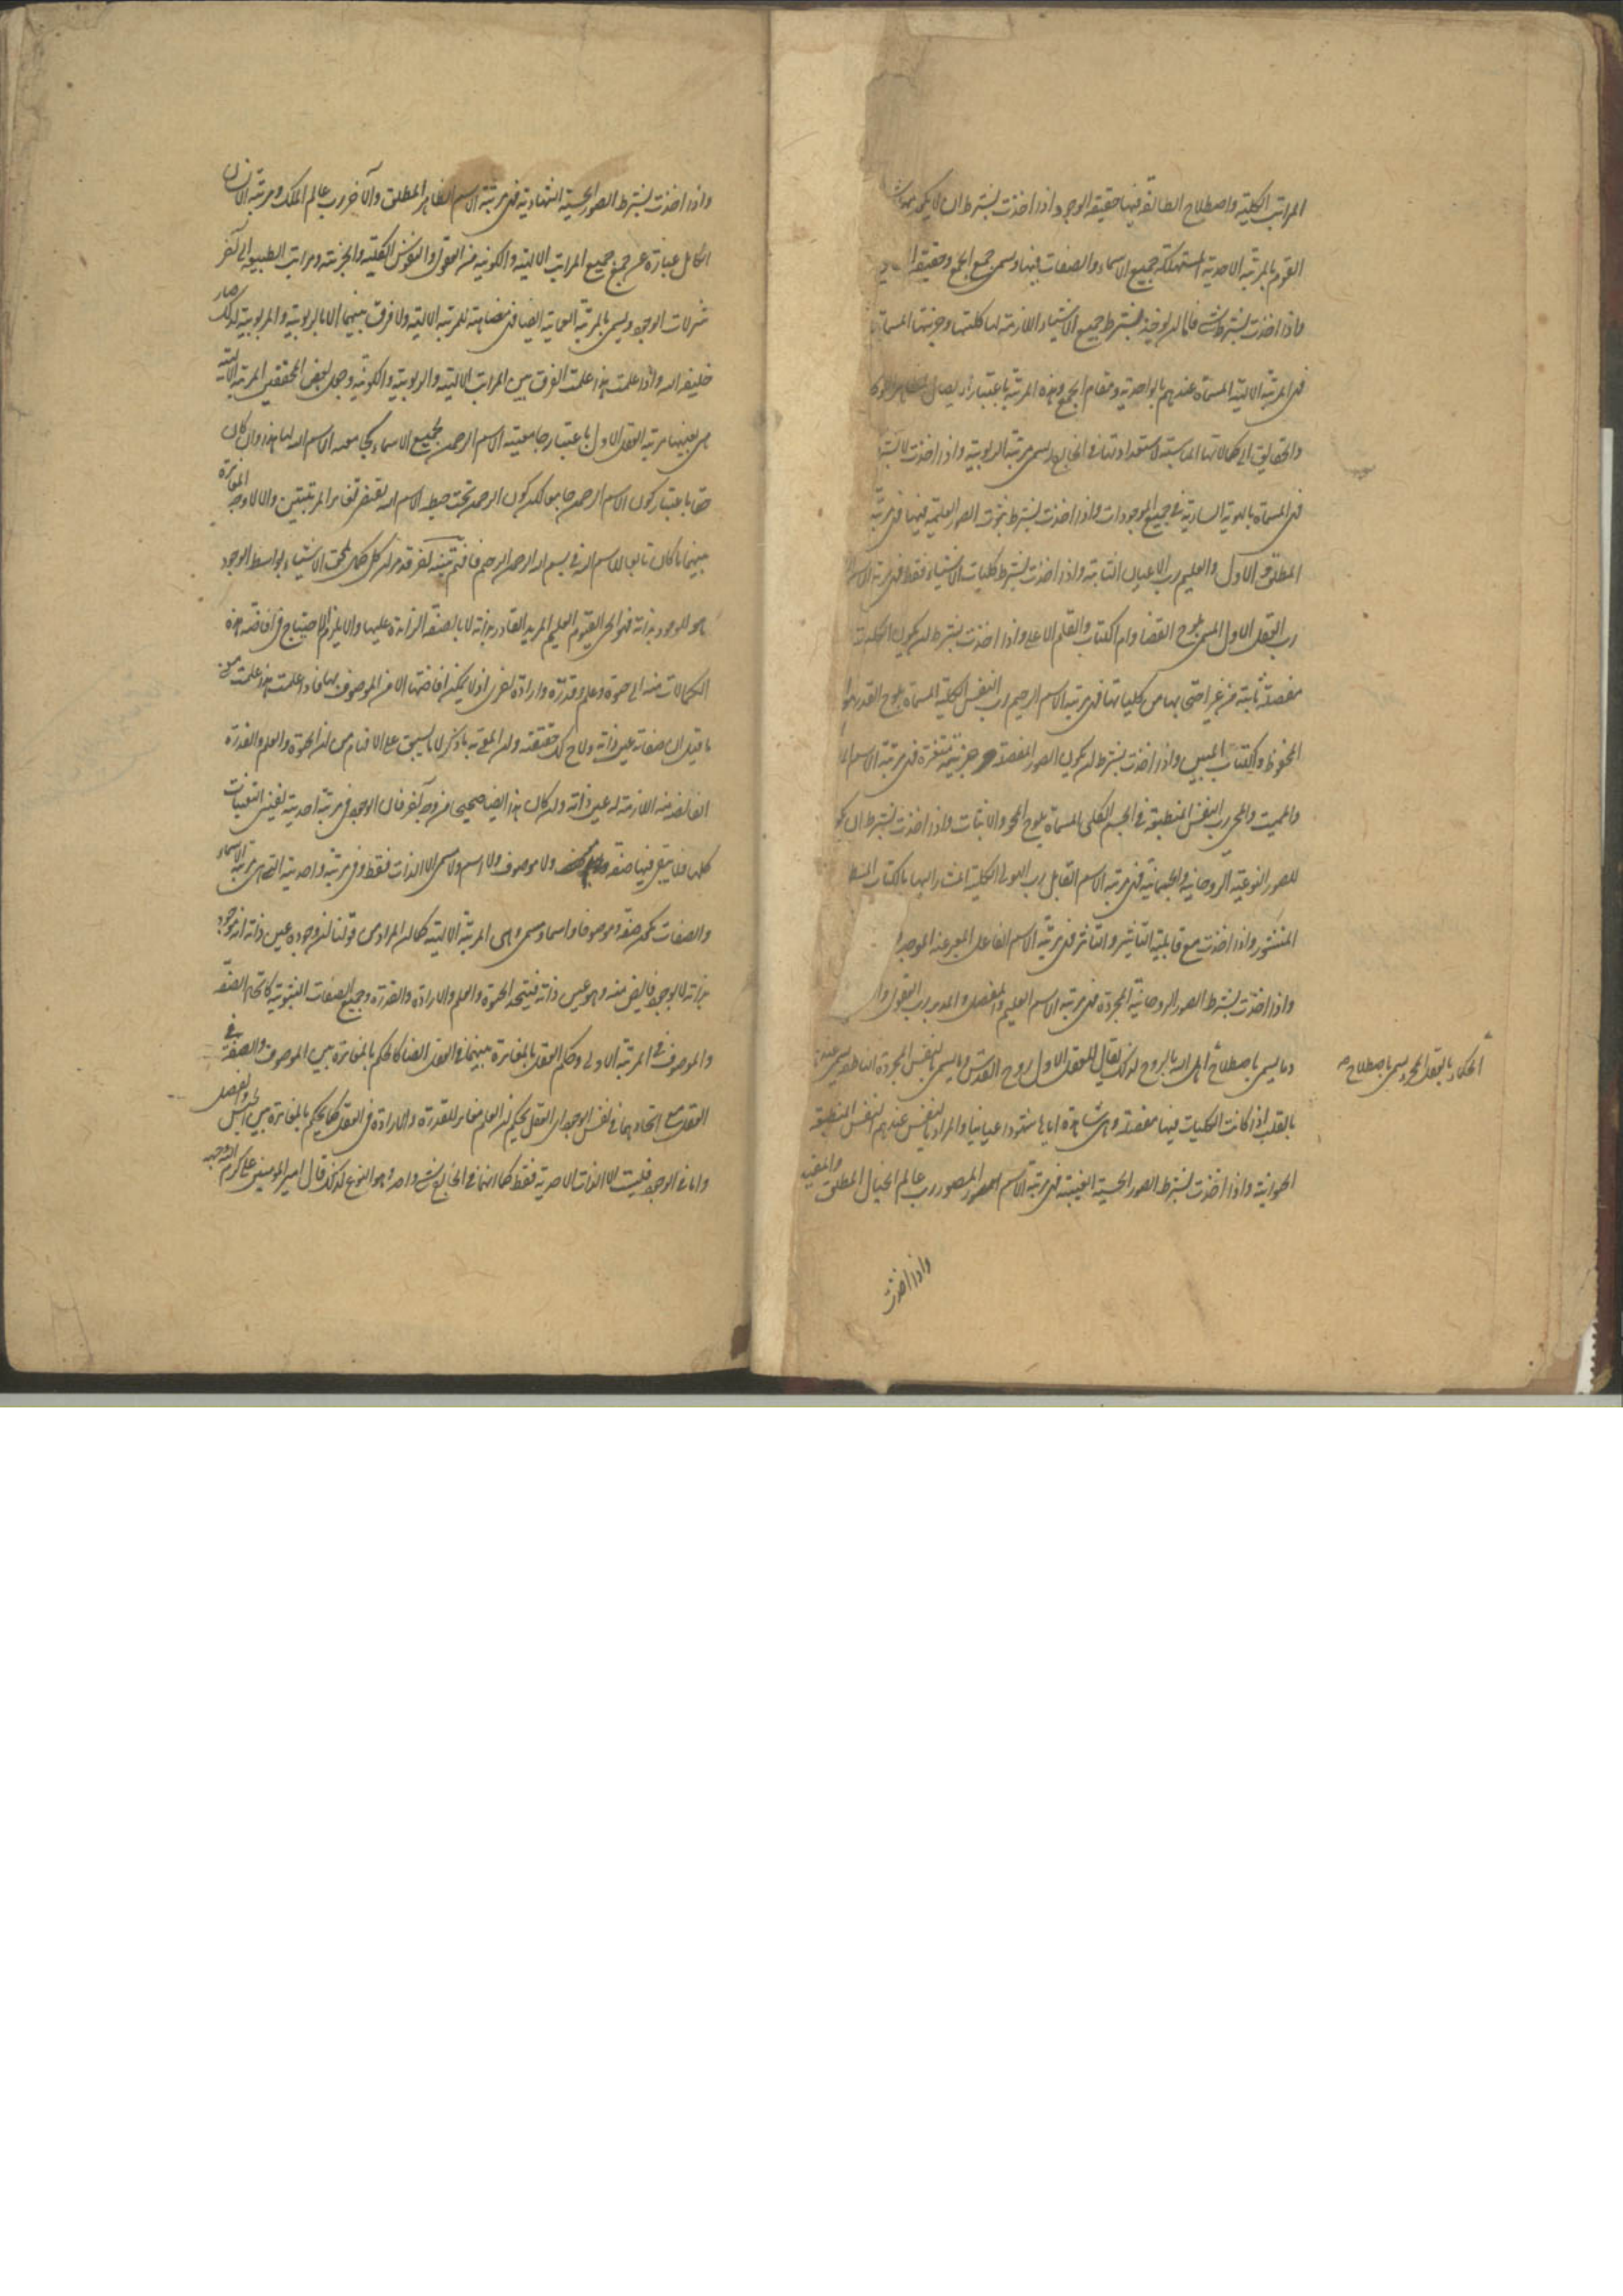 المراتب الكلية واصطلاح الطائفة فيها حقيقة الوجود اذا اخذت بشرط ان لا يكون معها شئ
القوم بالمرتبة الاحدية المستهلكة جميع الاسماء والصفات فيها ويسمى جمع الجمع وحقيقة
واذا اخذت بشرط شئ فاما ان يوخذ بشرط جميع الاشياء اللازمة لها كليتها وجزئيتها المسماة
فهى المرتبة الالهية المسماة عندهم بالواحدية ومقام الجمع وهذه المرتبة باعتبار الايصال
والحقايق الى كمالاتها المناسبة لاستعداداتها فى الخارج يسمى مرتبة الربوبية واذا اخذت لا بشرط
فهى المسماة بالهوية السارية فى جميع الموجودات واذا اخذت بشرط ثبوت الصور العلمية فيها فهى مرتبة
المطلق والاول والعليم رب الاعيان الثابتة واذا اخذت بشرط كليات الاشياء فقط فهى مرتبة الاسم
رب العقل الاول المسمى بلوح القضا وام الكتاب والقلم الاعلى واذا اخذت بشرط ان يكون الكليات
مفصلة ثابتة من غير احتجابها من كلياتها فهى مرتبة الاسم الرحيم رب النفس الكلية المسماة بلوح القدر وهو
المحفوظ والكتاب المبين واذا اخذت بشرط ان يكون الصور المفصلة جزئية متغيرة فهى مرتبة الاسم
والمميت والمحيى رب النفس المنطبقة فى الجسم الكلى المسماة بلوح المحو والاثبات واذا اخذت بشرط ان
للصور النوعية الروحانية والجسمانية فهى مرتبة الاسم القابل رب الهيولى الكلية المشار اليها بالكتاب
المنشور واذا اخذت مع قابلية التاثير والتاثر فهى مرتبة الاسم الفاعل المعبر عنه بالموجد
واذا اخذت بشرط الصور الروحانية المجردة فهى مرتبة الاسم العليم والمفصل والمدبر رب العقول
وما يسمى باصطلاح اهل الله بالروح لذلك يقال للعقل الاول روح القدس وما يسمى بالنفس المجردة الناطقة يسمى عندهم
الحكماء بالعقل المجرد يسمى باصطلاح
بالقلب اذا كانت الكليات فيها مفصلة وهى شاهدة اياها شهودا عيانيا والمراد بالنفس عندهم النفس المنطبقة
الحيوانية واذا اخذت بشرط الصور الحسية الغيبية فهى مرتبة الاسم المصور رب عالم الخيال المطلق والمقيد
واذا اخذت
واذا اخذت بشرط الصور الحسية الشهادية فهى مرتبة الاسم الظاهر المطلق والآخر رب عالم الملك ومرتبة الانسان
الكامل عبارة عن جمع جميع المراتب الالهية والكونية من العقول والنفوس الكلية والجزئية ومراتب الطبيعة الى آخر
تنزلات الوجود ويسمى بالمرتبة العمائية ايضا فهى مضاهية للمرتبة الالهية ولا فرق بينهما الا بالربوبية والمربوبية لذلك صار
خليفة الله واذا علمت هذا علمت الفرق بين المراتب الالهية والربوبية والكونية وجعل بعض المحققين المرتبة الالهية
هى بعينها مرتبة العقل الاول باعتبار جامعية الاسم الرحمن لجميع الاسماء كجامعية الاسم الله لها هذا وان كان
حقا باعتبار كون الاسم الرحمن جامعا لكن كون الرحمن تحت حيطة الاسم الله يقتضى تغاير المرتبتين والا لا وجه المغايرة
بينهما ما كان تابعا للاسم الله فى بسم الله الرحمن الرحيم فافهم تنبيه آخر قد مر ان كل كمال يلحق الاشياء بواسطة الوجود
هو الموجود بذاته فهو الحى القيوم العليم المريد القادر بذاته لا بالصفة الزائدة عليها والا يلزم الاحتياج فى افاضة هذه
الكمالات منه الى حيوة وعلم وقدرة وارادة اخرى اذ لا يمكن افاضتها الا من الموصوف بها فاذا علمت هذا علمت معنى
ما قيل ان صفاته عين ذاته ولاح لك حقيقته وان المعنى به ما ذكر لا ما يسبق الى الافهام من ان الحيوة والعلم والقدرة
الفائضة منه اللازمة له عين ذاته وان كان هذا ايضا صحيحا من وجه آخر فان الوجود فى مرتبة احدية ينفى التعينات
كلها فلا يبقى فيها صفة ولا موصوف ولا اسم ولا مسمى الا الذات فقط وفى مرتبة واحدية التى هى مرتبة الاسماء
والصفات يكون صفة وموصوفا واسما ومسمى وهى المرتبة الالهية كما ان المراد من قولنا ان وجوده عين ذاته انه موجود
بذاته لا بوجود فائض منه وهو عين ذاته فيتحد الحيوة والعلم والارادة والقدرة وجميع الصفات الثبوتية كاتحاد الصفة
والموصوف فى المرتبة الاولى وحكم العقل بالمغايرة بينهما فى العقل ايضا كالحكم بالمغايرة بين الموصوف والصفة فى
العقل مع اتحادهما فى نفس الوجود اى العقل يحكم ان العلم مغاير للقدرة والارادة فى العقل كما يحكم بالمغايرة بين الجنس والفصل
واما فى الوجود فليست الا الذات الاحدية فقط كما انهما فى الخارج شئ واحد وهو النوع لذلك قال امير المومنين على كرم الله وجهه